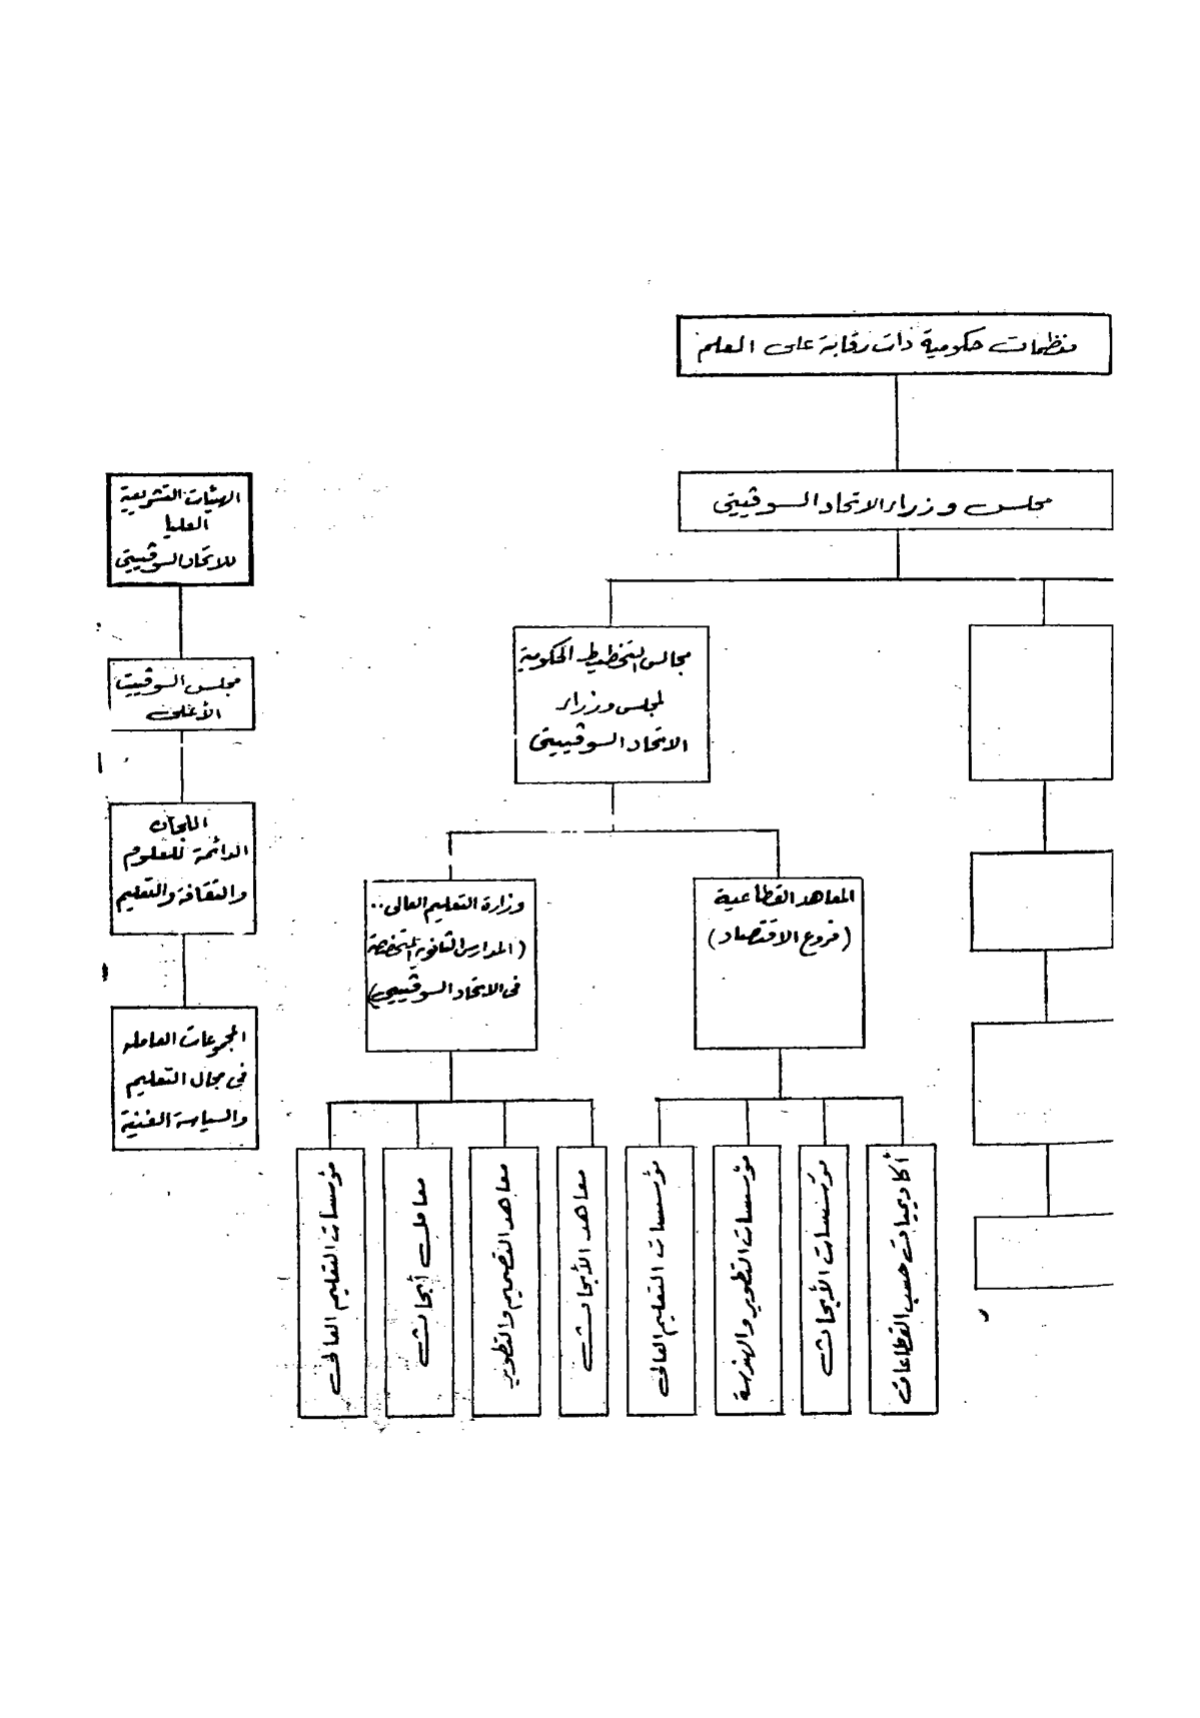 منظمات حكومية ذات رقابة على العلم
مجلس وزراء الاتحاد السوڤييتى
مجالس التخطيط الحكومية
لمجلس وزراء
الاتحاد السوڤييتى
المعاهد القطاعية
(فروع الاقتصاد)
وزارة التعليم العالى..
(المدارس الثانوية المتخصصة
فى الاتحاد السوڤييتى)
أكاديميات حسب القطاعات
مؤسسات الأبحاث
مؤسسات التطوير والهندسة
مؤسسات التعليم العالى
معاهد الأبحاث
معاهد التصميم والتطوير
معامل أبحاث
مؤسسات التعليم العالى
الهيئات التشريعية
العليا
للاتحاد السوڤييتى
مجلس السوڤييت
الأعلى
اللجان
الدائمة للعلوم
والثقافة والتعليم
المجموعات العاملة
فى مجال التعليم
والسياسة الفنية